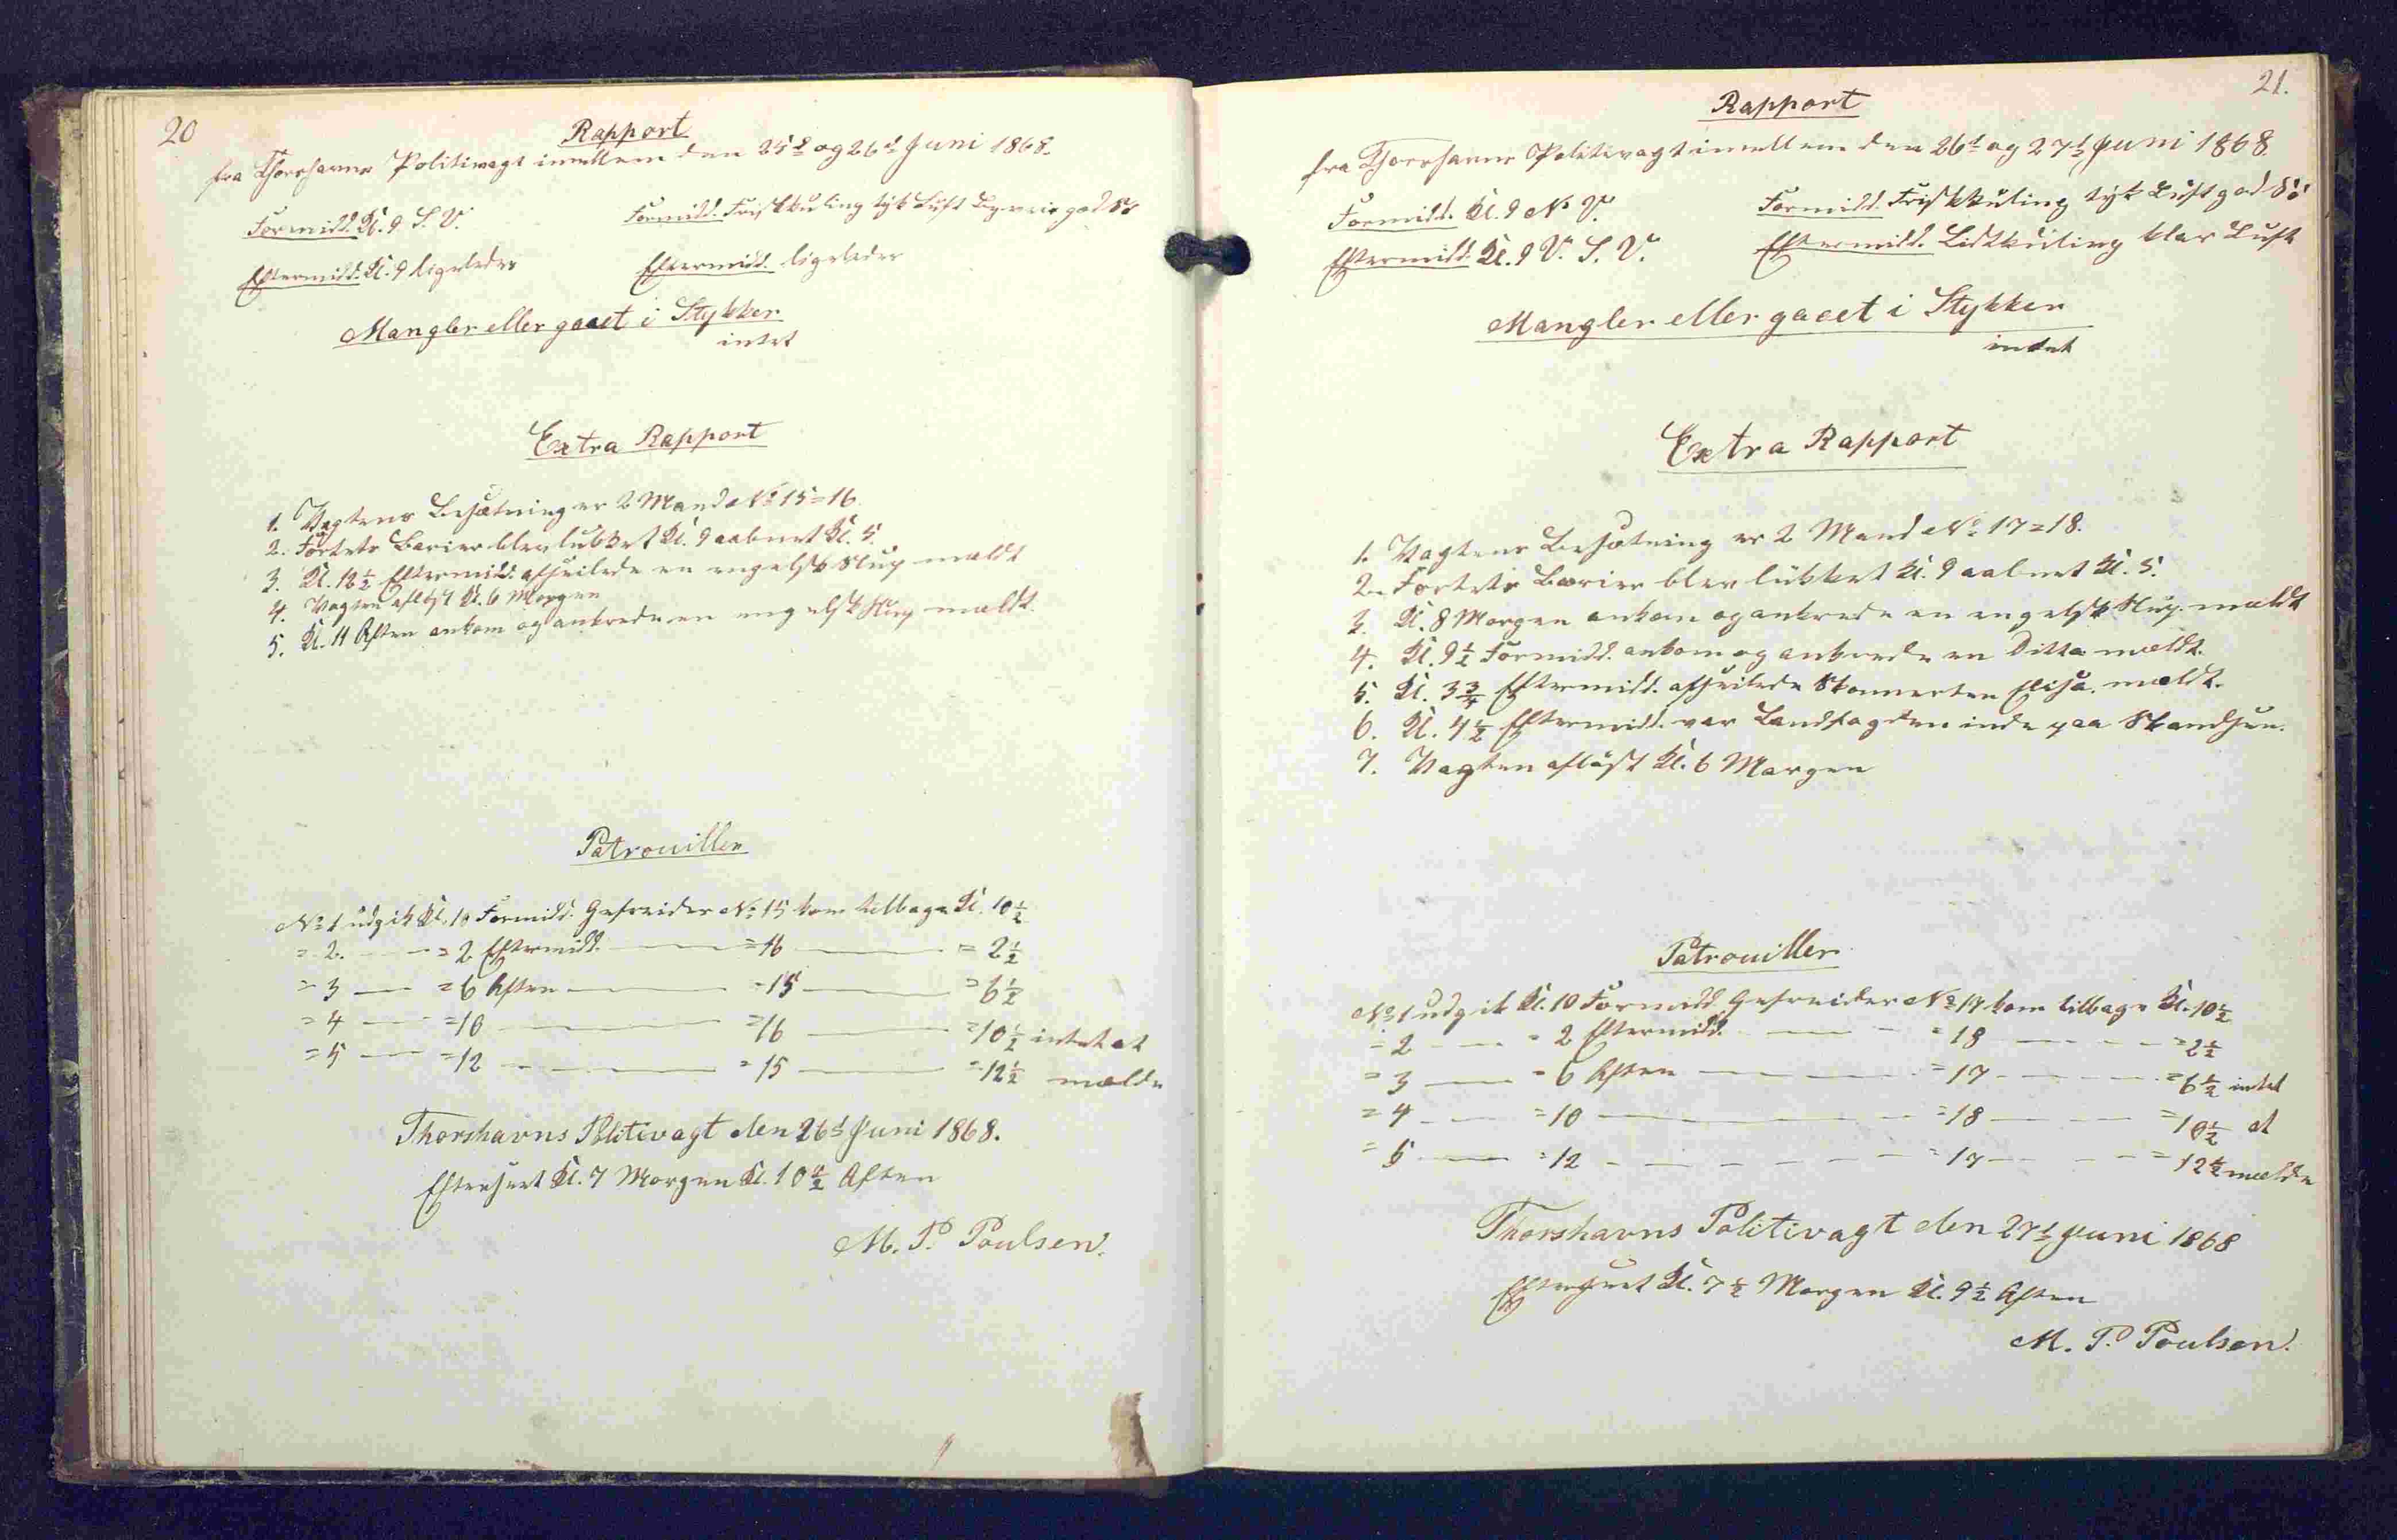 20
Rapport
fra Thorshavns Politivagt imellem den 25d og 26d Juni 1868.
Formidd. Kl. 9 S. V. Formidd. Friskkuling tyk Luft god Sö
Eftermidd. Kl. 9 ligeledes Eftermidd. ligeledes
Mangler eller gaaet i Stykker
intet
Extra Rapport
1. Vagtens Besætning er 2 Mand No 15 = 16
2. Fortets Barier blev lukket Kl. 9 aabnet Kl. 5.
3. Kl. 12½ Eftermidd. afseilede en engelsk Slup mældt
4. Vagten aflöst Kl. 6 Morgen
5. Kl. 11 Aften ankom og ankrede en engelsk Slup mældt.
Patrouiller
No 1 udgik Kl. 10 Formidd. Gefreider No 15 kom tilbage Kl. 10½
= 2. — = 2 Eftermidd. — = 16 — = 2½
= 3 — = 6 Aften — = 15 — = 6½
= 4 — = 10 — = 16 — = 10½ intet at
= 5 — = 12 — = 15 — = 12½ mælde
Thorshavns Politivagt den 26d Juni 1868.
Efterseet Kl. 7 Morgen Kl. 10½ Aften
M. P. Poulsen.
21.
Rapport
fra Thorshavns Politivagt imellem den 26d og 27d Juni 1868
Formidd. Kl. 9 N. V. Formidd. Friskkuling tyk Luft god Sö
Eftermidd. Kl. 9 V. S. V. Eftermidd. Lidtkuling klar Luft
Mangler eller gaaet i Stykker
indet
Extra Rapport
1. Vagtens Besætning er 2 Mand No 17 = 18.
2. Fortets Barier blev lukket Kl. 9 aabnet Kl. 5.
3. Kl. 8 Morgen ankom og ankrede en engelsk Slup. mældt
4. Kl. 9½ Formidd. ankom og ankrede en Ditto mældt.
5. Kl. 3¾ Eftermidd. afseilede Skonnerten Elisa. mældt.
6. Kl. 4½ Eftermidd. var Landfogden inde paa Skandsen.
7. Vagten aflöst Kl. 6 Morgen
Patrouiller
No 1 udgik Kl. 10 Formidd. Gefreider No 17 kom tilbage Kl. 10½
= 2 — = 2 Eftermidd. — = 18 — = 2½
= 3 — = 6 Aften — = 17 — = 6½ intet
= 4 — = 10 — = 18 — = 10½ at
= 5 — = 12 — = 17 — = 12½ mælde
Thorshavns Politivagt den 27d Juni 1868
Efterseet Kl. 7½ Morgen Kl. 9½ Aften
M. P. Poulsen.